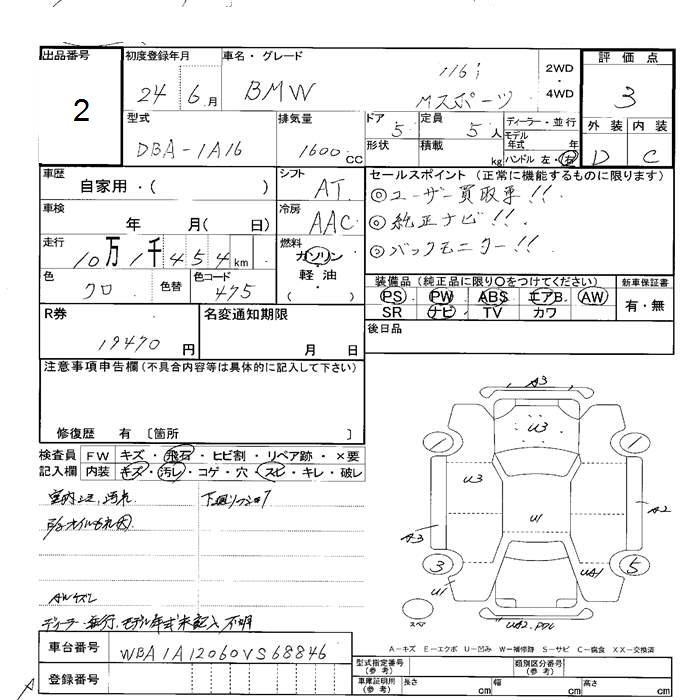 出品番号 初度登録年月 車名・グレード 評価点
2 24 6月 BMW 116i Mスポーツ 2WD・4WD 3
型式 排気量 ドア 5 定員 5人 ディーラー・並行 外装 内装
DBA-1A16 1600cc 形状 積載 kg モデル年式 年 D C
ハンドル 左・右
車歴 シフト セールスポイント (正常に機能するものに限ります)
自家用・( ) AT ◎ユーザー買取車!!
車検 冷房 ◎純正ナビ!!
年 月( 日) AAC ◎バックモニター!!
走行 燃料
10万1千454km ガソリン
軽油
( )
色 クロ 色替 色コード 475
装備品 (純正品に限り〇をつけてください) 新車保証書
PS PW ABS エアB AW 有・無
SR ナビ TV カワ
R券 名変通知期限 後日品
19470円 月 日
注意事項申告欄(不具合内容等は具体的に記入して下さい)
修復歴 有 〔箇所 〕
検査員 FW キズ・飛石・ヒビ割・リペア跡・×要
記入欄 内装 キズ・汚レ・コゲ・穴・スレ・キレ・破レ
A3
U3
1 1
U3
U1
A3 A2
3 5
U1 UA1
スペア
UA2.
AWキズ
ディーラー・並行、モデル年式未記入 不明
A－キズ E－エクボ U－凹み W－補修跡 S－サビ C－腐食 XX－交換済
車台番号 WBA1A12060VS68846
登録番号
型式指定番号(参考) 類別区分番号(参考)
車庫証明用(参考) 長さ cm 幅 cm 高さ cm